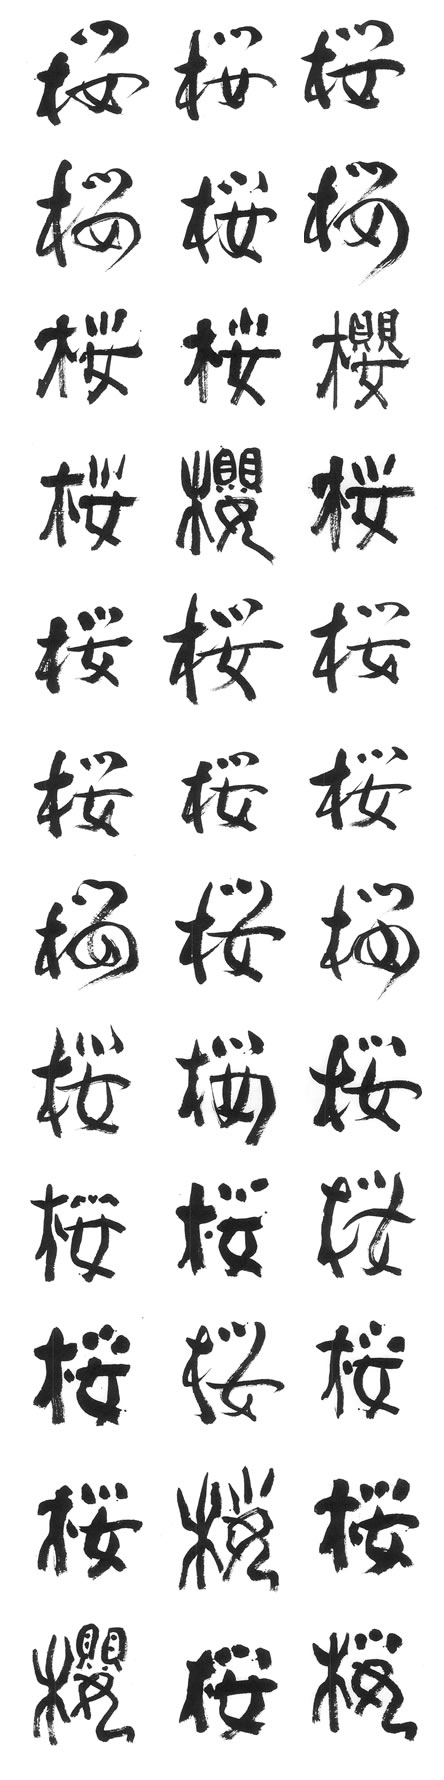 桜 桜 桜
桜 桜 桜
桜 桜 櫻
桜 櫻 桜
桜 桜 桜
桜 桜 桜
桜 桜 桜
桜 桜 桜
桜 桜 桜
桜 桜 桜
桜 桜 桜
櫻 桜 桜